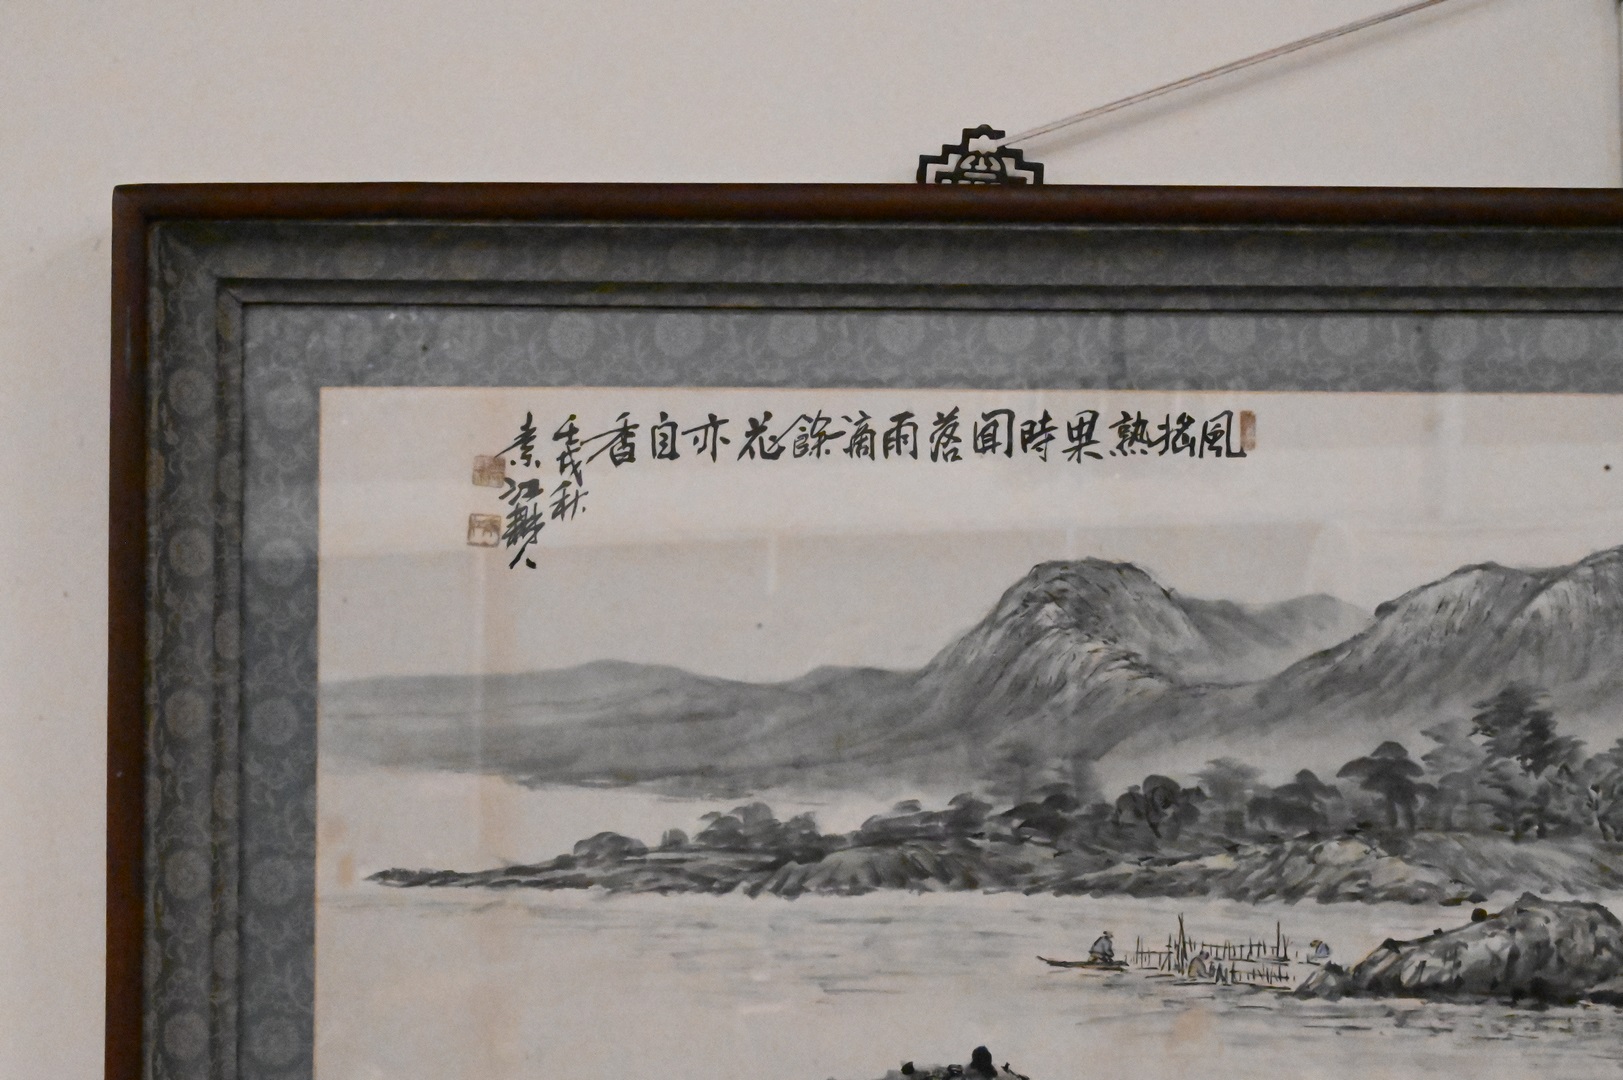 風搖熟果時聞落雨滴餘花亦自香
壬戌秋
素江耕人